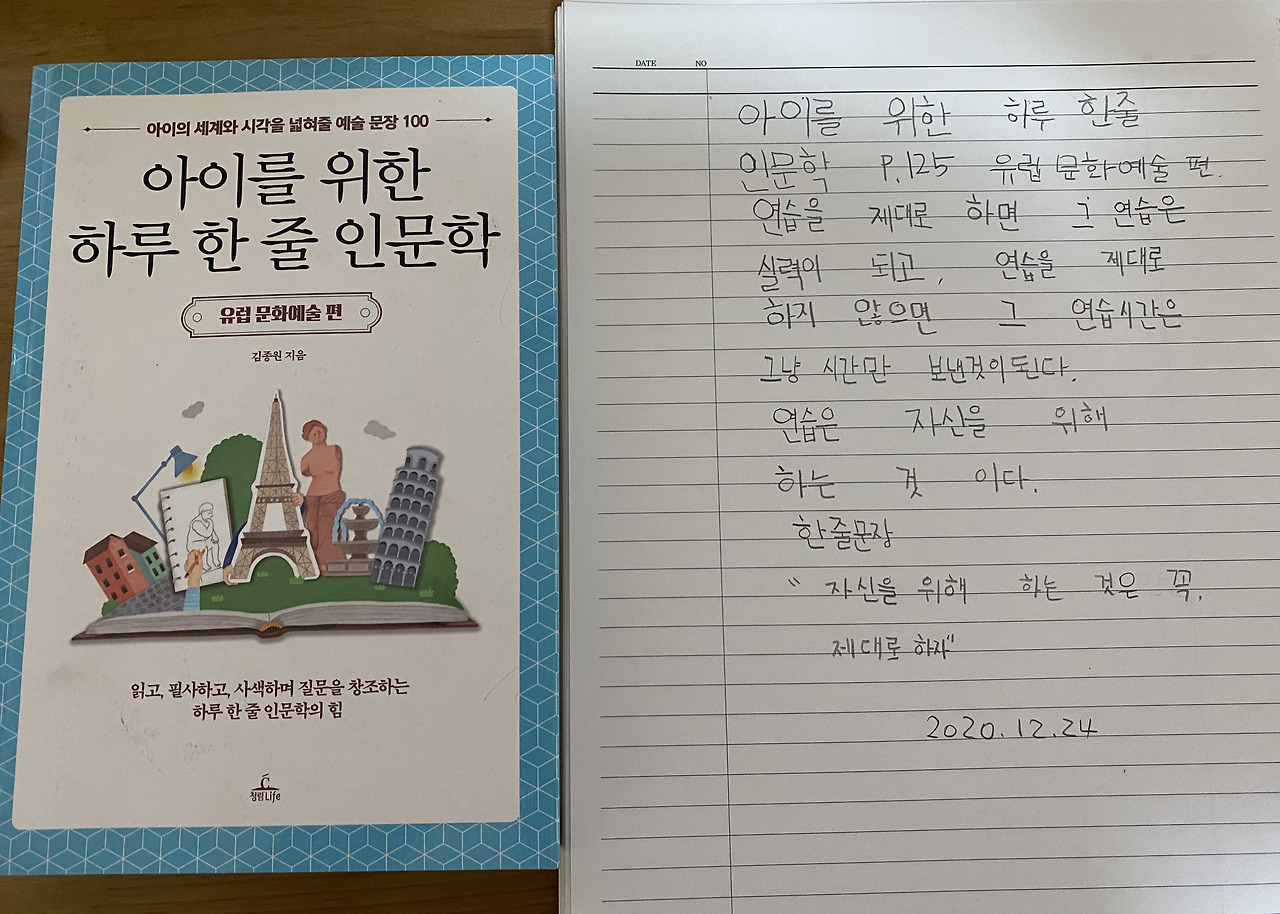 아이의 세계와 시각을 넓혀줄 예술 문장 100
아이를 위한
하루 한 줄 인문학
유럽 문화예술 편
김종원 지음
읽고, 필사하고, 사색하며 질문을 창조하는
하루 한 줄 인문학의 힘
청림Life
DATE NO
아이를 위한 하루 한줄
인문학 P.125 유럽 문화예술 편.
연습을 제대로 하면 그 연습은
실력이 되고, 연습을 제대로
하지 않으면 그 연습시간은
그냥 시간만 보낸것이된다.
연습은 자신을 위해
하는 것 이다.
한줄문장
"자신을 위해 하는 것은 꼭.
제대로 하자"
2020.12.24